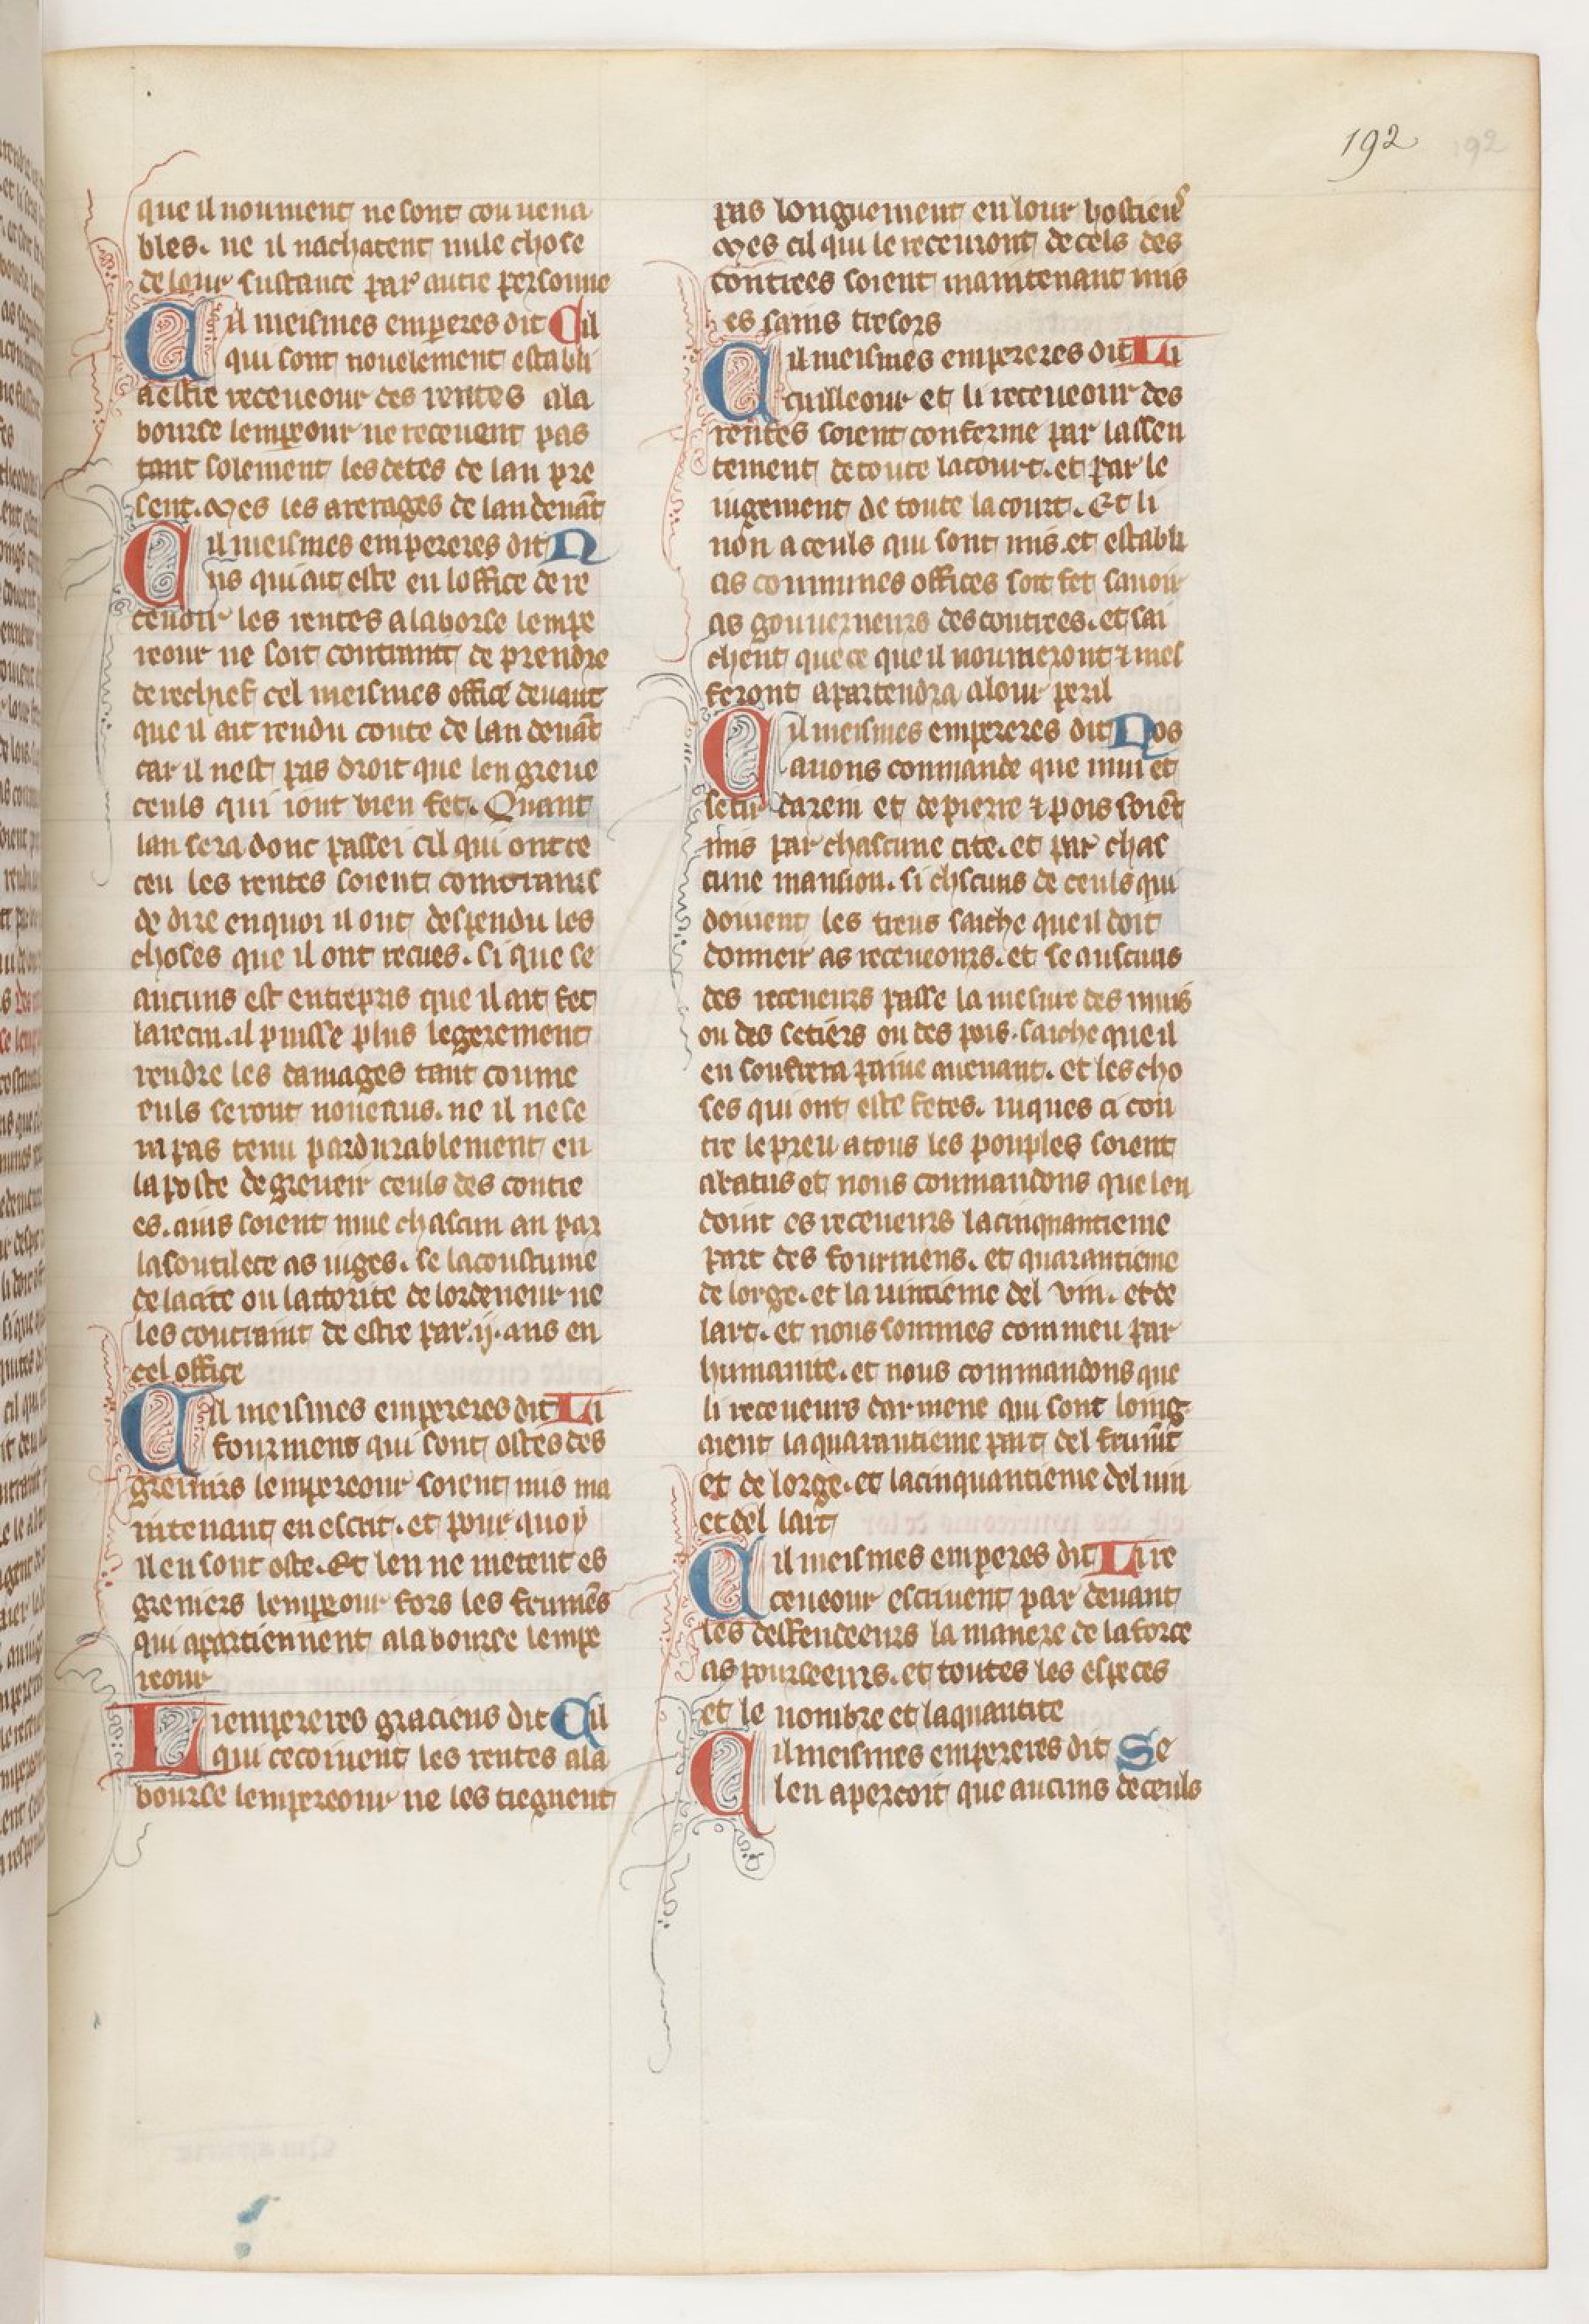 192
que il noument ne sont conuena
bles. ne il nachatent nule chose
de lour sustance par autre personne
Cil meismes emperes dit Cil
qui sont nouelement establi
a estre receueour des rentes ala
bourse lempereour ne receuent pas
tant solement les detes de lan pre
sent. Mes les arerages de lan deuāt
Cil meismes empereres dit N
us qui ait este en loffice de re
ceuoir les rentes a la borse lempe
reour ne soit contraint de prendre
de rechief cel meismes office deuant
que il ait rendu conte de lan deuāt
car il nest pas droit que len greue
ceuls qui iont bien fet. Quant
lan sera donc passei cil qui ont re
ceu les rentes soient contraint
de dire en quoi il ont despendu les
choses que il ont recues. si que se
aucuns est entrepris que il ait fet
larecin. il puisse plus legerement
rendre les damages tant coume
euls seront nouenus. ne il ne se
ra pas tenu pardurablement en
la poste de greueir ceuls des contre
es. ains soient mue chascun an par
la soutilece as iuges. se la coustume
de la cite ou lattorite de lordeneur ne
les contraint de estre par .ij. ans en
cel office
Cil meismes empereres dit Li
fourmens qui sont ostes des
greniers lempereour soient mis ma
intenant en escrit. et pour quoy
il en sont oste. Et len ne metent es
greniers lempereour fors les frumēs
qui apartiennent a la bourse lempe
reour
Li empereres graciens dit Cil
qui recoiuent les rentes ala
bourse lempereour ne les tiegnent
pas longuement en lour hostieus
Mes cil qui le receuront de cels des
contrees soient maintenant mis
es sains tresors
Cil meismes empereres dit Li
cuilleour et li receueour des
rentes soient conferme par lassen
tement de toute la court. et par le
iugement de toute la court. Et li
non a ceuls qui sont mis. et establi
as communes offices soit fet sauoir
as gouuerneurs des contrees. et sai
chent que ce que il noumeront & mes
feront apartendra a lour peril
Cil meismes empereres dit Nos
auons commande que mui et
setier darein et de pierre & pois soiēt
mis par chascune cite. et par chas
cune mansion. si chscuns de ceuls qui
doiuent les treus saiche que il doit
donneir as receueours. et se auscuns
des receueurs passe la mesure des muis
ou des setiers ou des pois. saiche que il
en soufrera paine auenant. et les cho
ses qui ont este fetes. iuques ci con
tre le preu a tous les pouples soient
abatus et nous coumandons que len
doint es receueurs la cinquantieme
part des fourmens. et quarantieme
de lorge. et la uintieme del vin. et de
lart. et nous sommes commeu par
humanite. et nous commandons que
li receueurs darmene qui sont loing
aient la quarantieme part del frumēt
et de lorge. et la cinquantieme del uin
et del lart
Cil meismes emperes dit Li re
ceueour escriuent par deuant
les deffendeeurs la manere de la force
as pourseeurs. et toutes les especes
et le nombre et la quantite
Cil meismes empereres dit Se
len apercoit que aucuns de ceuls